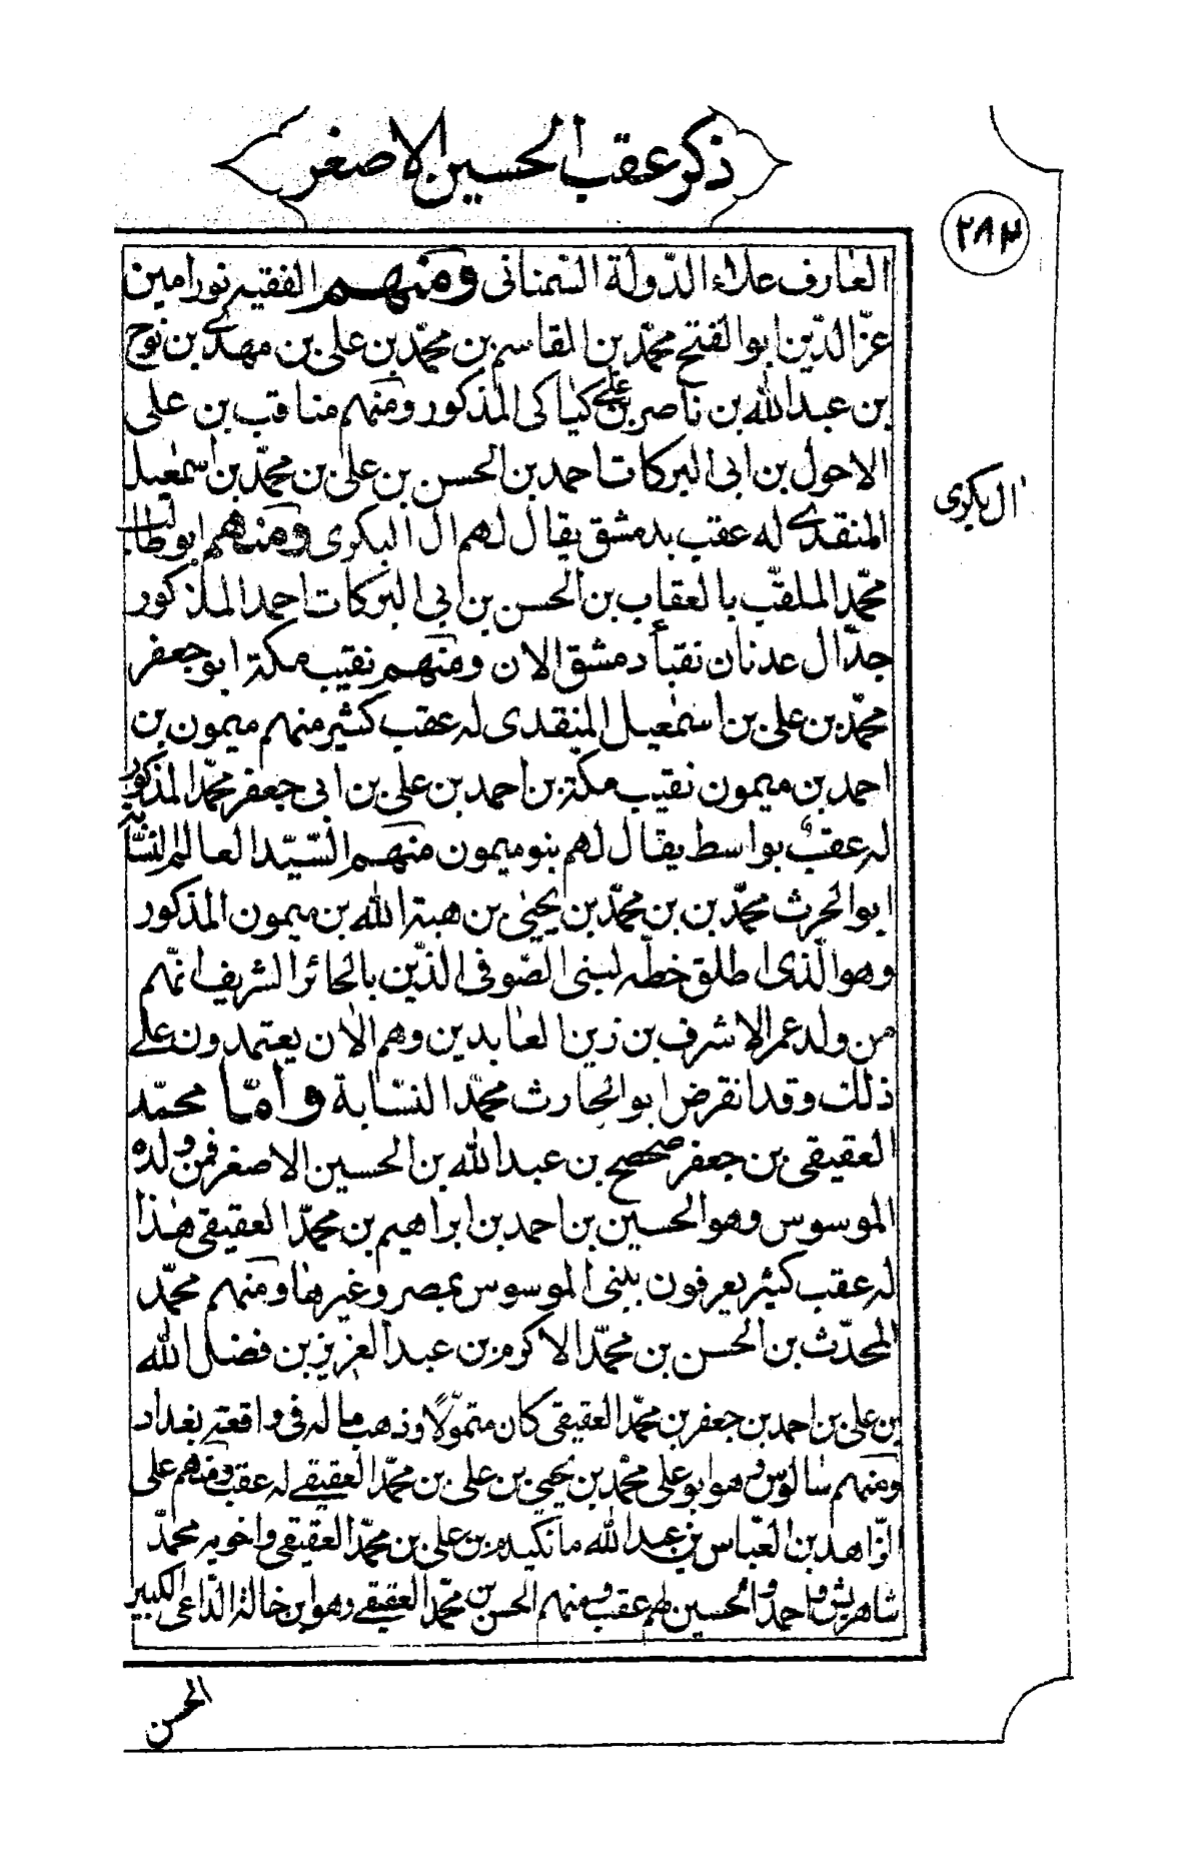 ذكر عقب الحسين الاصغر
٢٨٣
العارف علاء الدّولة السّمنانى ومنهم الفقيه نور امين
عزّ الدّين ابو الفتح محمّد بن القاسم بن محمّد بن على بن مهدي بن نوح
بن عبد الله بن ناصر بن علي كياكى المذكور ومنهم مناقب بن على
الاحول بن ابى البركات احمد بن الحسن بن على بن محمّد بن اسمعيل
ال بكرى
المنقدي له عقب بدمشق يقال لهم ال البكرى ومنهم ابو طالب
محمّد الملقّب بالعقاب بن الحسن بن ابى البركات احمد المذكور
جدّ ال عدنان نقبأ دمشق الان ومنهم نقيب مكة ابو جعفر
محمّد بن على بن اسمعيل المنقدى له عقب كثير منهم ميمون بن
احمد بن ميمون نقيب مكّة بن احمد بن على بن ابى جعفر محمّد المذكور
له عقب بواسط يقال لهم بنو ميمون منهم السّيّد العالم النسّابة
ابو الحرث محمّد بن بن محمّد بن يحيى بن هبة الله بن ميمون المذكور
وهو الّذى اطلق خطّه لبنى الصّوفى الذّين بالحائر الشريف انّهم
من ولد عمر الاشرف بن زين العابدين وهم الان يعتمدون على
ذلك وقد انقرض ابو الحارث محمّد النسّابة وامّا محمّد
العقيقى بن جعفر صحصح بن عبد الله بن الحسين الاصغر فمن ولده
الموسوس وهو الحسين بن احمد بن ابراهيم بن محمّد العقيقى هذا
له عقب كثير يعرفون ببنى الموسوس بمصر وغيرها ومنهم محمّد
المحدّث بن الحسن بن محمّد الاكرم بن عبد العزيز بن فضل الله
بن على بن احمد بن جعفر بن محمّد العقيقى كان متموّلاً وذهب ماله فى واقعة بغداد
ومنهم سالوس وهو ابو على محمّد بن يحيى بن على بن محمّد العقيقي له عقب ومنهم على
الزّاهد بن العبّاس بن عبد الله مانكيدم بن على بن محمّد العقيقى واخويه محمّد
شاهريش واحمد والحسين لهم عقب ومنهم الحسن بن محمّد العقيقي وهو ابن خالة الدّاعى الكبير
الحسن